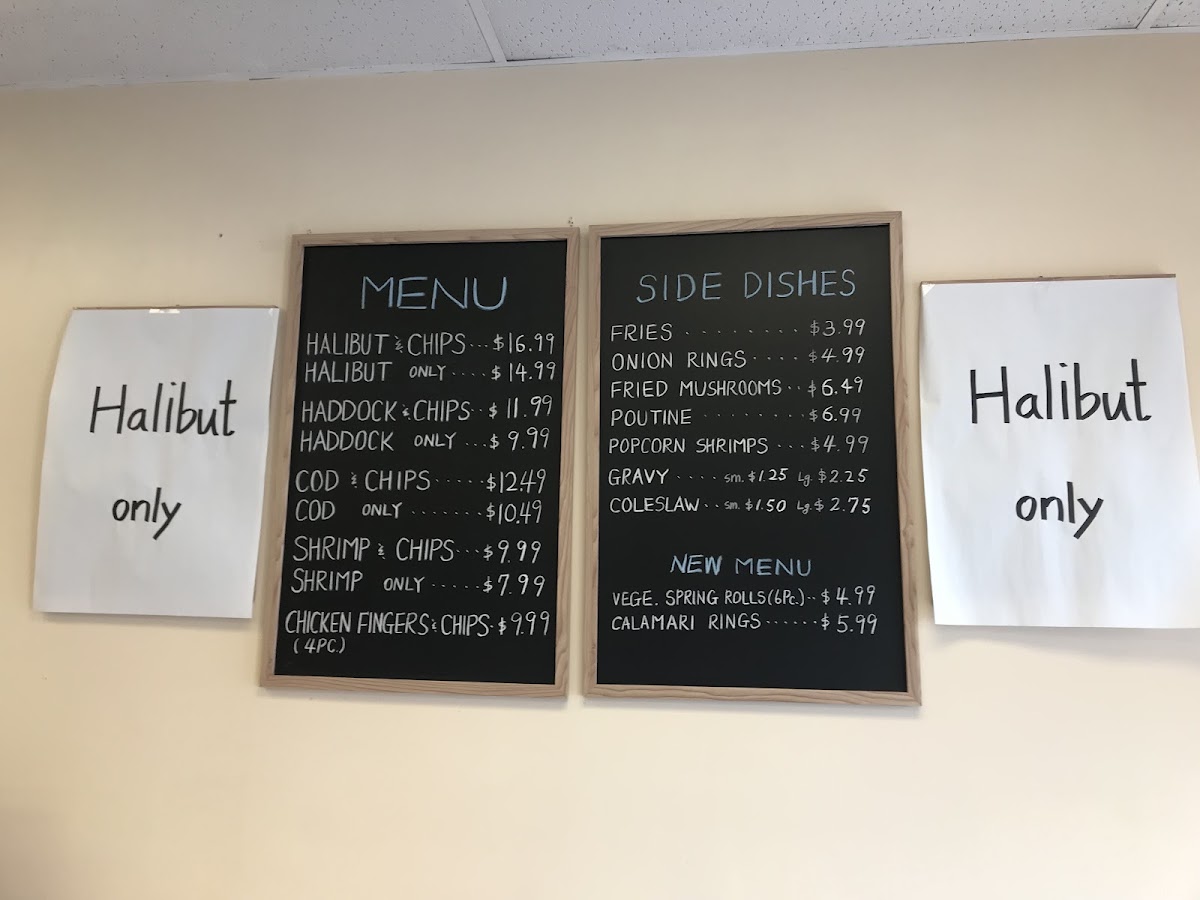 Halibut
only
MENU
HALIBUT & CHIPS...$16.99
HALIBUT ONLY....$14.99
HADDOCK & CHIPS..$11.99
HADDOCK ONLY...$9.99
COD & CHIPS.....$12.49
COD ONLY.......$10.49
SHRIMP & CHIPS...$9.99
SHRIMP ONLY.....$7.99
CHICKEN FINGERS & CHIPS.$9.99
(4PC.)
SIDE DISHES
FRIES........$3.99
ONION RINGS....$4.99
FRIED MUSHROOMS..$6.49
POUTINE........$6.99
POPCORN SHRIMPS...$4.99
GRAVY....sm.$1.25 Lg.$2.25
COLESLAW..sm.$1.50 Lg.$2.75
NEW MENU
VEGE. SPRING ROLLS(6Pc.)..$4.99
CALAMARI RINGS......$5.99
Halibut
only